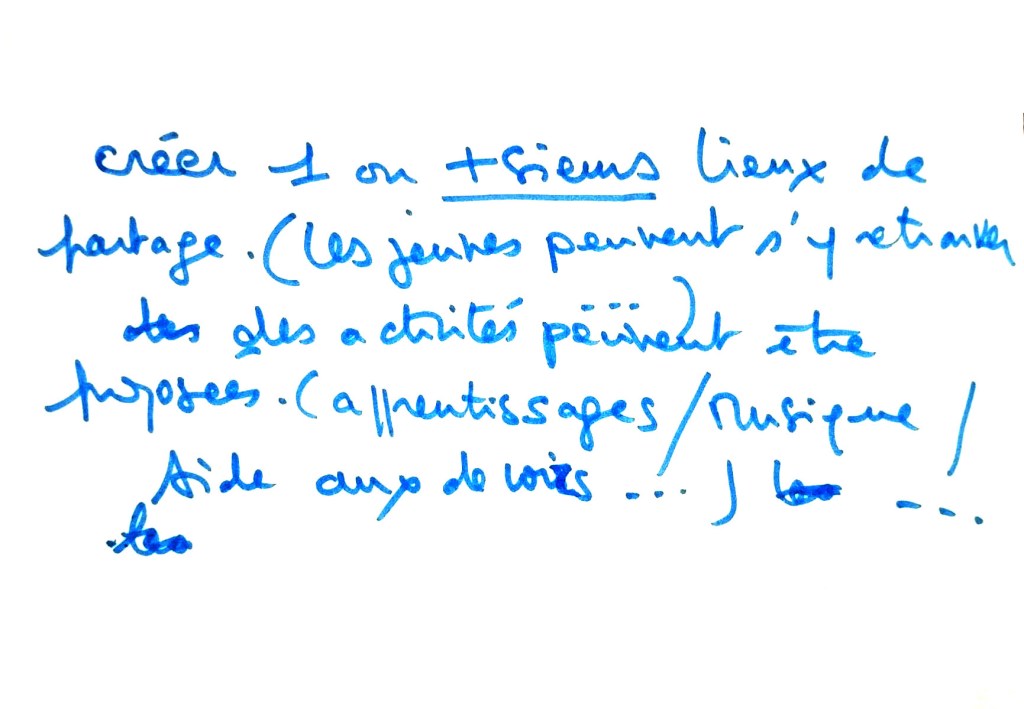 créer 1 ou +sieurs lieux de
partage. (les jeunes peuvent s'y retrouver
des activités peuvent être ...)
proposées. (apprentissages / Musique /
Aide aux devoirs ...) ...